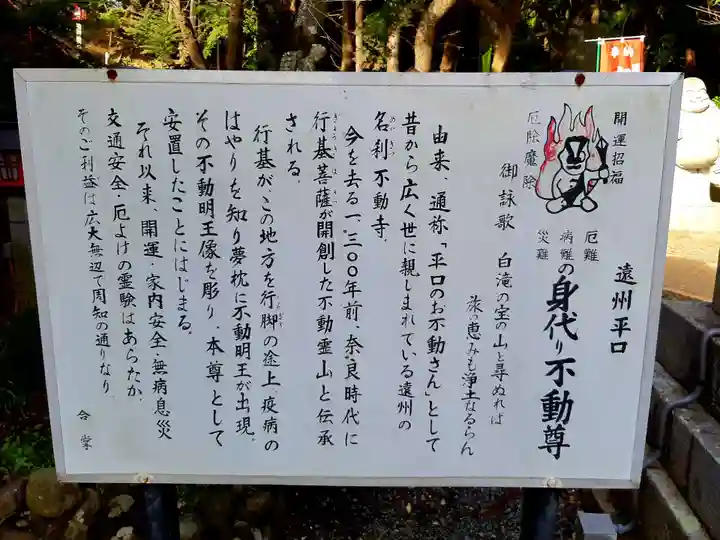 遠州平口
厄難
病難
災難
の身代り不動尊
開運招福
厄除魔除
御詠歌
白滝の宝の山と尋ぬれば
旅の恵みも浄土なるらん
由来、通称「平口のお不動さん」として
昔から広く世に親しまれている遠州の
名刹不動寺。
今を去る一、三〇〇年前、奈良時代に
行基菩薩が開創した不動霊山と伝承
される。
行基がこの地方を行脚の途上疫病の
はやりを知り夢枕に不動明王が出現。
その不動明王像を彫り、本尊として
安置したことにはじまる。
それ以来、開運・家内安全・無病息災
交通安全・厄よけの霊験はあらたか、
そのご利益は広大無辺で周知の通りなり。
合掌
奉納